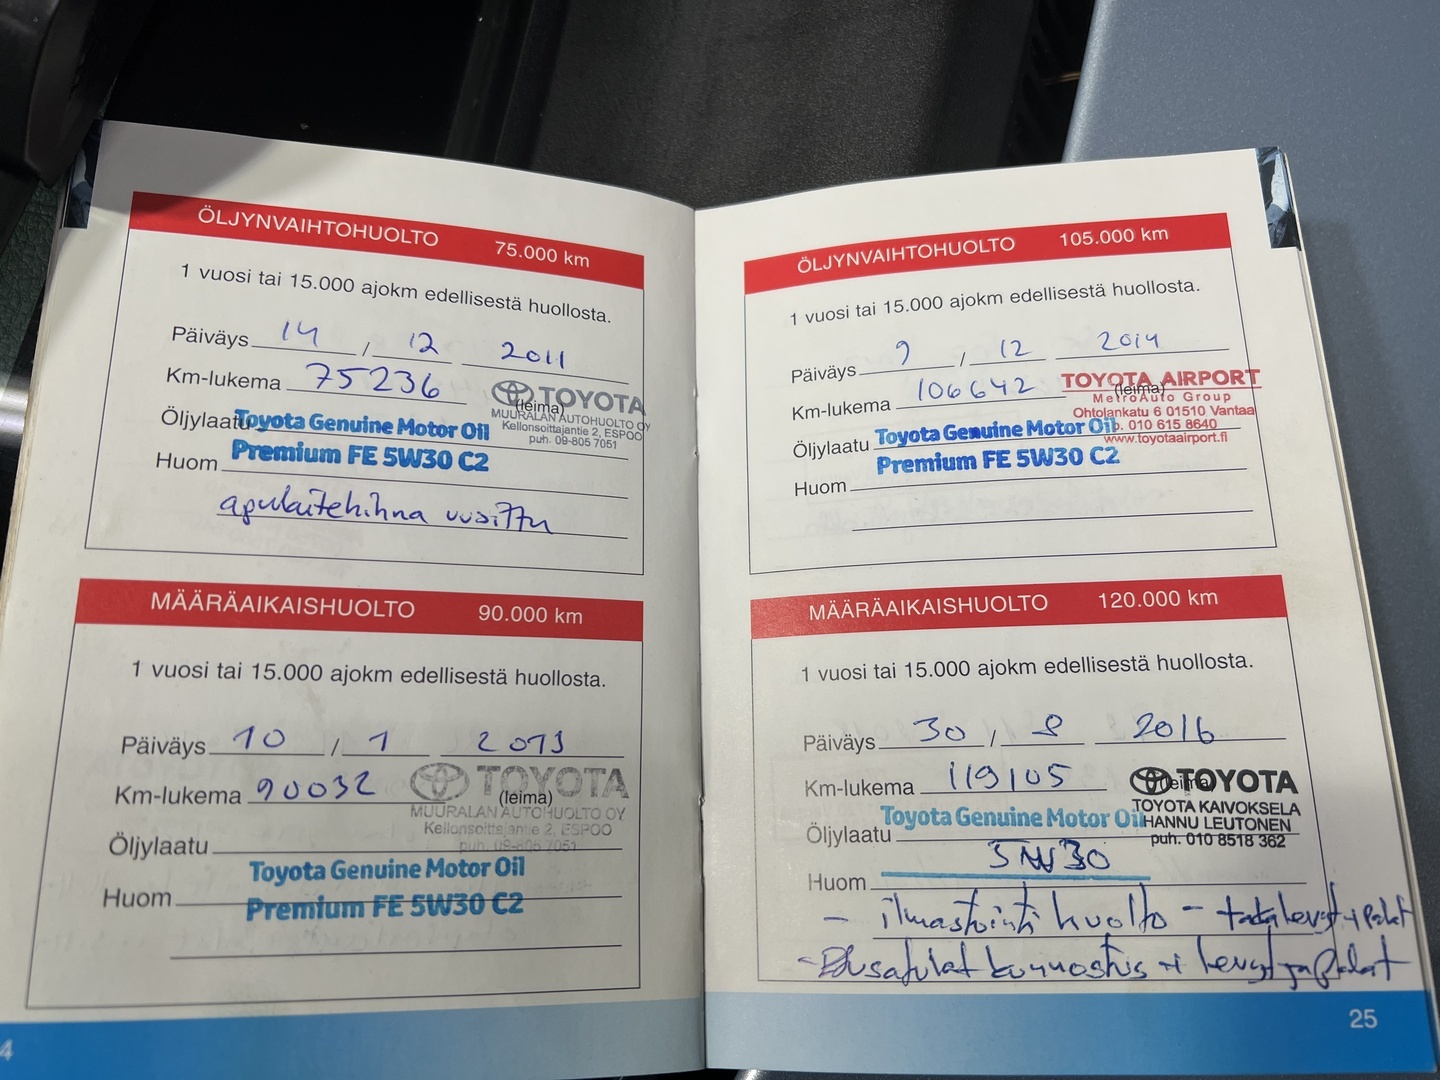 ÖLJYNVAIHTOHUOLTO 75.000 km
1 vuosi tai 15.000 ajokm edellisestä huollosta.
Päiväys 14 / 12 2011
Km-lukema 75236
TOYOTA
(leima)
MUURALAN AUTOHUOLTO OY
Kellonsoittajantie 2, ESPOO
puh. 09-805 7051
Öljylaatu Toyota Genuine Motor Oil
Premium FE 5W30 C2
Huom
apulaitehihna uusittu
MÄÄRÄAIKAISHUOLTO 90.000 km
1 vuosi tai 15.000 ajokm edellisestä huollosta.
Päiväys 10 / 1 2013
Km-lukema 90032
TOYOTA
(leima)
MUURALAN AUTOHUOLTO OY
Kellonsoittajantie 2, ESPOO
puh. 09-805 7051
Öljylaatu
Toyota Genuine Motor Oil
Huom
Premium FE 5W30 C2
4
ÖLJYNVAIHTOHUOLTO 105.000 km
1 vuosi tai 15.000 ajokm edellisestä huollosta.
Päiväys 9 / 12 2014
Km-lukema 106642
TOYOTA AIRPORT
(leima)
MetroAuto Group
Ohtolankatu 6 01510 Vantaa
p. 010 615 8640
www.toyotaairport.fi
Öljylaatu Toyota Genuine Motor Oil
Premium FE 5W30 C2
Huom
MÄÄRÄAIKAISHUOLTO 120.000 km
1 vuosi tai 15.000 ajokm edellisestä huollosta.
Päiväys 30 / 8 2016
Km-lukema 119105
TOYOTA
(leima)
TOYOTA KAIVOKSELA
HANNU LEUTONEN
puh. 010 8518 362
Öljylaatu Toyota Genuine Motor Oil
5W30
Huom
- ilmastointi huolto - takalevyt + palat
- Etusatulat kunnostus + levyt ja palat
25